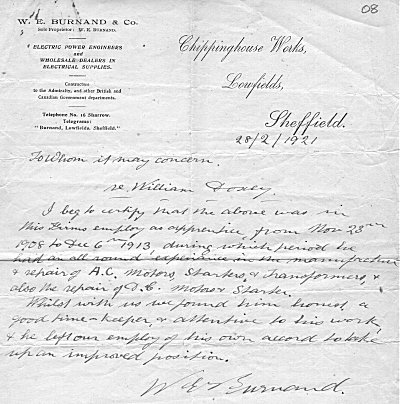 08
W. E. BURNAND & Co.
Sole Proprietor: W. E. BURNAND.
ELECTRIC POWER ENGINEERS
and
WHOLESALE DEALERS IN
ELECTRICAL SUPPLIES.
Contractors
to the Admiralty, and other British and
Canadian Government departments.
Telephone No. 16 Sharrow.
Telegrams:
"Burnand, Lowfields, Sheffield."
Chippinghouse Works,
Lowfields,
Sheffield.
28/2/1921
To Whom it may concern.
re William Doxey
I beg to certify that the above was in
this firms employ as apprentice, from Nov 23rd
1908 to Dec 6th 1913, during which period he
had an all round experience in the manufacture
& repair of A.C. Motors, Starters & Transformers, &
also the repair of D.C. Motors & Starters.
Whilst with us we found him honest, a
good time-keeper, & attentive to his work,
& he left our employ of his own accord to take
up an improved position.
W E Burnand.